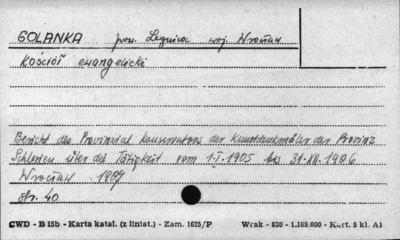 GOLANKA pow. Legnica woj. Wrocław
Kościół ewangelicki
Bericht des Provinzial Konservators der Kunstdenkmäler der Provinz
Schlesien über die Tätigkeit vom 1.I.1905 bis 31.XII.1906
Wrocław 1907
str. 40
CWD - B 15b - Karta katal. (z liniat.) - Zam. 1625/P Wrak - 630 - 1.169.000 - Kart. 3 kl. A1